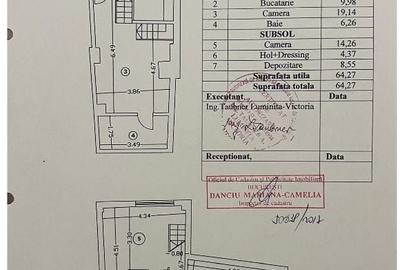 2 Bucatarie 9,98
3 Camera 19,14
4 Baie 6,26
SUBSOL
5 Camera 14,26
6 Hol+Dressing 4,37
7 Depozitare 8,55
Suprafata utila 64,27
Suprafata totala 64,27
Executant, Data
Ing.Taubner Luminita-Victoria
Receptionat, Data
Oficiul de Cadastru si Publicitate Imobiliara
BUCURESTI
DANCIU MARIANA-CAMELIA
Inspector de cadastru
6.49
3
4.67
3.86
1.75
4
3.49
4.34
4.51
5
3.30
0.80